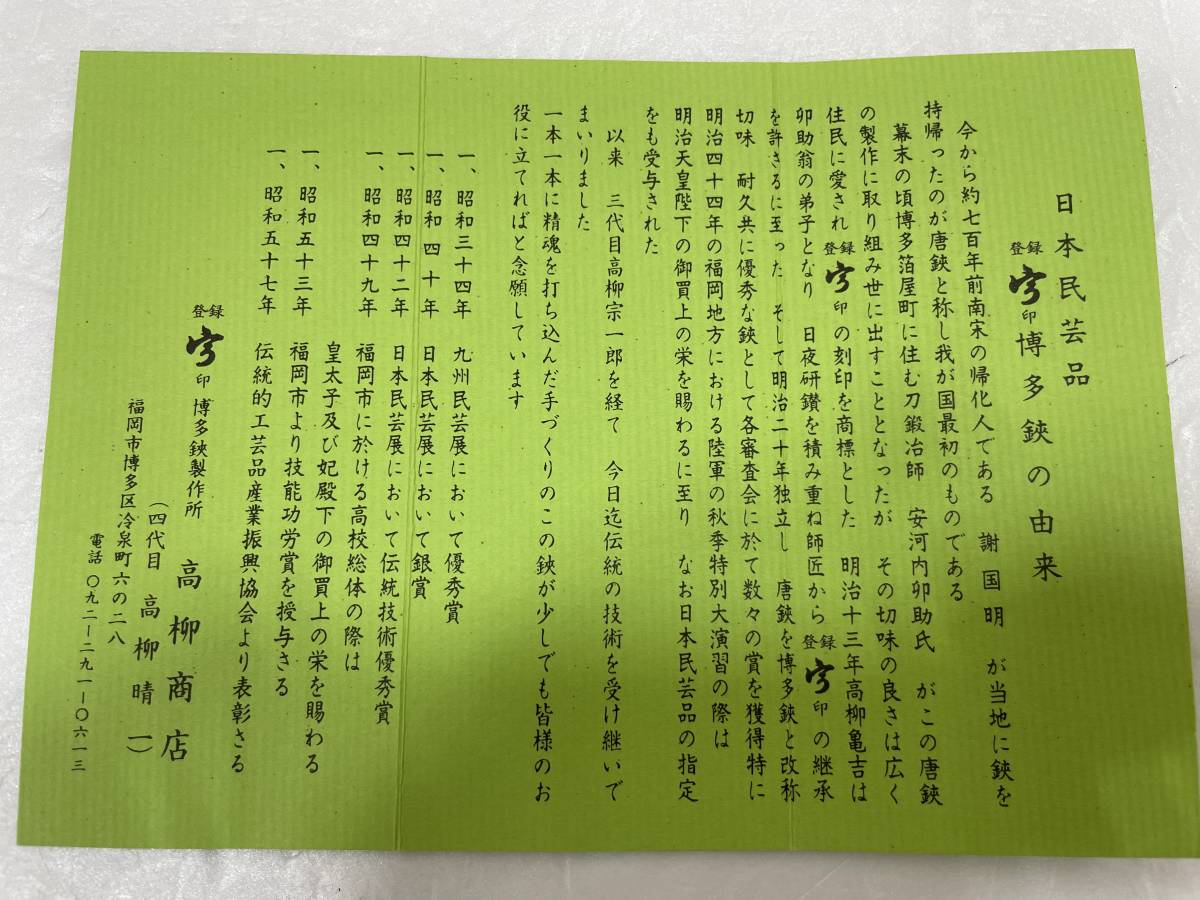 日本民芸品
登録 印 博多鋏の由来
今から約七百年前南宋の帰化人である 謝国明 が当地に鋏を
持帰ったのが唐鋏と称し我が国最初のものである
幕末の頃博多箔屋町に住む刀鍛冶師 安河内卯助氏 がこの唐鋏
の製作に取り組み世に出すこととなったが その切味の良さは広く
住民に愛され 登録 印 の刻印を商標とした 明治十三年高柳亀吉は
卯助翁の弟子となり 日夜研鑽を積み重ね師匠から 登録 印 の継承
を許さるに至った そして明治二十年独立し 唐鋏を博多鋏と改称
切味 耐久共に優秀な鋏として各審査会に於て数々の賞を獲得特に
明治四十四年の福岡地方における陸軍の秋季特別大演習の際は
明治天皇陛下の御買上の栄を賜わるに至り なお日本民芸品の指定
をも受与された
以来 三代目高柳宗一郎を経て 今日迄伝統の技術を受け継いで
まいりました
一本一本に精魂を打ち込んだ手づくりのこの鋏が少しでも皆様のお
役に立てればと念願しています
一、昭和三十四年 九州民芸展において優秀賞
一、昭和四十年 日本民芸展において銀賞
一、昭和四十二年 日本民芸展において伝統技術優秀賞
一、昭和四十九年 福岡市に於ける高校総体の際は
皇太子及び妃殿下の御買上の栄を賜わる
一、昭和五十三年 福岡市より技能功労賞を授与さる
一、昭和五十七年 伝統的工芸品産業振興協会より表彰さる
登録 印 博多鋏製作所 高柳商店
(四代目 高柳晴一)
福岡市博多区冷泉町六の二八
電話 〇九二ー二九一ー〇六一三